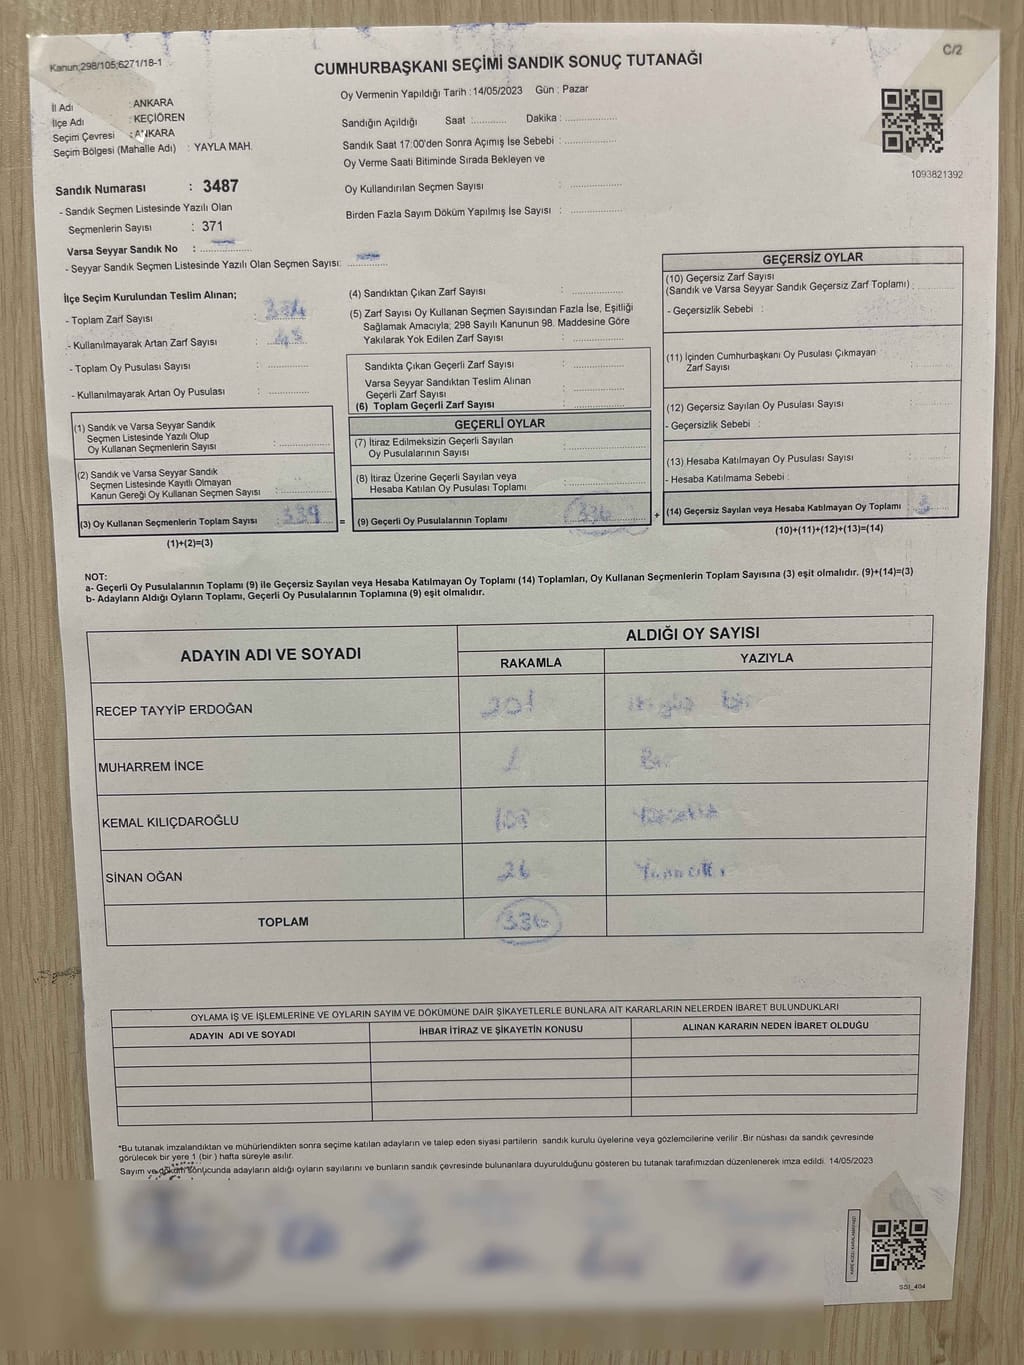 Kanun;298/105;6271/18-1
C/2
CUMHURBAŞKANI SEÇİMİ SANDIK SONUÇ TUTANAĞI
Oy Vermenin Yapıldığı Tarih : 14/05/2023 Gün : Pazar
İl Adı : ANKARA
İlçe Adı : KEÇİÖREN
Seçim Çevresi : ANKARA
Seçim Bölgesi (Mahalle Adı) : YAYLA MAH.
Sandığın Açıldığı Saat :........... Dakika :................
Sandık Saat 17:00'den Sonra Açımış İse Sebebi :................
Oy Verme Saati Bitiminde Sırada Bekleyen ve
Oy Kullandırılan Seçmen Sayısı :................
Birden Fazla Sayım Döküm Yapılmış İse Sayısı :................
1093821392
Sandık Numarası : 3487
- Sandık Seçmen Listesinde Yazılı Olan
Seçmenlerin Sayısı : 371
Varsa Seyyar Sandık No :................
- Seyyar Sandık Seçmen Listesinde Yazılı Olan Seçmen Sayısı:............
İlçe Seçim Kurulundan Teslim Alınan;
- Toplam Zarf Sayısı :
- Kullanılmayarak Artan Zarf Sayısı :
- Toplam Oy Pusulası Sayısı :............
- Kullanılmayarak Artan Oy Pusulası :............
(1) Sandık ve Varsa Seyyar Sandık
Seçmen Listesinde Yazılı Olup
Oy Kullanan Seçmenlerin Sayısı :............
(2) Sandık ve Varsa Seyyar Sandık
Seçmen Listesinde Kayıtlı Olmayan
Kanun Gereği Oy Kullanan Seçmen Sayısı :............
(3) Oy Kullanan Seçmenlerin Toplam Sayısı : 339 =
(1)+(2)=(3)
(4) Sandıktan Çıkan Zarf Sayısı :............
(5) Zarf Sayısı Oy Kullanan Seçmen Sayısından Fazla İse, Eşitliği
Sağlamak Amacıyla; 298 Sayılı Kanunun 98. Maddesine Göre
Yakılarak Yok Edilen Zarf Sayısı :............
Sandıkta Çıkan Geçerli Zarf Sayısı :............
Varsa Seyyar Sandıktan Teslim Alınan
Geçerli Zarf Sayısı :............
(6) Toplam Geçerli Zarf Sayısı :............
GEÇERLİ OYLAR
(7) İtiraz Edilmeksizin Geçerli Sayılan
Oy Pusulalarının Sayısı :............
(8) İtiraz Üzerine Geçerli Sayılan veya
Hesaba Katılan Oy Pusulası Toplamı :............
(9) Geçerli Oy Pusulalarının Toplamı : 336 +
GEÇERSİZ OYLAR
(10) Geçersiz Zarf Sayısı
(Sandık ve Varsa Seyyar Sandık Geçersiz Zarf Toplamı) :
- Geçersizlik Sebebi :
(11) İçinden Cumhurbaşkanı Oy Pusulası Çıkmayan
Zarf Sayısı :
(12) Geçersiz Sayılan Oy Pusulası Sayısı :
- Geçersizlik Sebebi :
(13) Hesaba Katılmayan Oy Pusulası Sayısı :
- Hesaba Katılmama Sebebi :
(14) Geçersiz Sayılan veya Hesaba Katılmayan Oy Toplamı : 3
(10)+(11)+(12)+(13)=(14)
NOT:
a- Geçerli Oy Pusulalarının Toplamı (9) ile Geçersiz Sayılan veya Hesaba Katılmayan Oy Toplamı (14) Toplamları, Oy Kullanan Seçmenlerin Toplam Sayısına (3) eşit olmalıdır. (9)+(14)=(3)
b- Adayların Aldığı Oyların Toplamı, Geçerli Oy Pusulalarının Toplamına (9) eşit olmalıdır.
ADAYIN ADI VE SOYADI ALDIĞI OY SAYISI
RAKAMLA YAZIYLA
RECEP TAYYİP ERDOĞAN 201
MUHARREM İNCE 1 Bir
KEMAL KILIÇDAROĞLU 108
SİNAN OĞAN 26
TOPLAM 336
OYLAMA İŞ VE İŞLEMLERİNE VE OYLARIN SAYIM VE DÖKÜMÜNE DAİR ŞİKAYETLERLE BUNLARA AİT KARARLARIN NELERDEN İBARET BULUNDUKLARI
ADAYIN ADI VE SOYADI İHBAR İTİRAZ VE ŞİKAYETİN KONUSU ALINAN KARARIN NEDEN İBARET OLDUĞU
*Bu tutanak imzalandıktan ve mühürlendikten sonra seçime katılan adayların ve talep eden siyasi partilerin sandık kurulu üyelerine veya gözlemcilerine verilir .Bir nüshası da sandık çevresinde
görülecek bir yere 1 (bir ) hafta süreyle asılır.
Sayım ve döküm sonucunda adayların aldığı oyların sayılarını ve bunların sandık çevresinde bulunanlara duyurulduğunu gösteren bu tutanak tarafımızdan düzenlenerek imza edildi. 14/05/2023